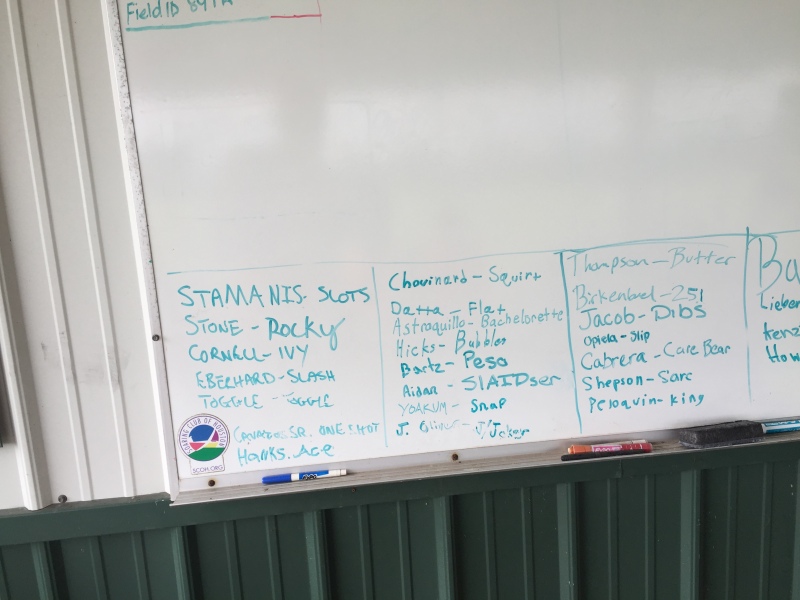 Field ID 84TA
STAMANIS- SLOTS
STONE - ROCKY
CORNELL- IVY
EBERHARD-SLASH
TOGGLE - TOGGLE
SR. ONE SHOT
HANKS. Ace
SOARING CLUB OF HOUSTON
SCOH.ORG
Chouinard - Squirt
Datta - Flat
Astroquillo - Bachelorette
Hicks - Bubbles
Bartz - Peso
Aidan - SlAIDser
YOAKUM - Snap
J. Oliver -
Thompson - Butter
Birkenbeul - 251
Jacob - Dibs
Opiela - Slip
Cabrera - Care Bear
Shepson - Sarc
Peloquin - King
Ba
Lieber
Kenz
How